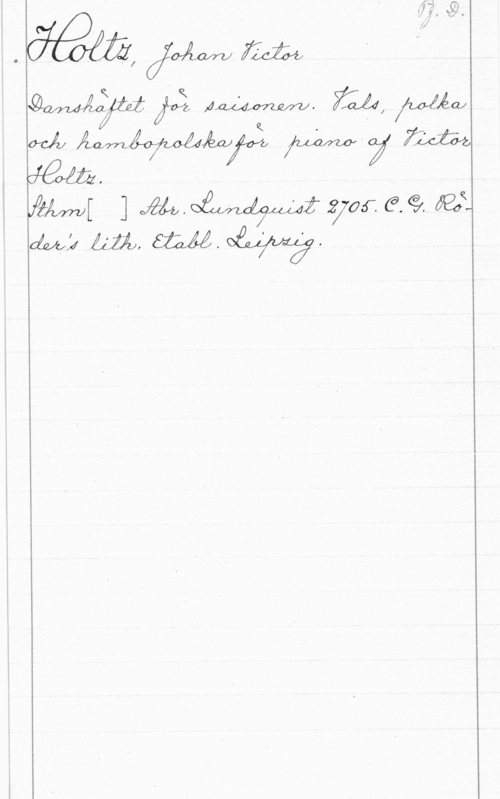 Pf. D.
Holtz, Johan Victor
Danshäftet för saisonen. Vals, polka
och hambopolska för piano af Victor
Holtz.
Sthm [ ] Abr. Lundquist 2705. C. G. Rö-
der's lith. Etabl. Leipzig.